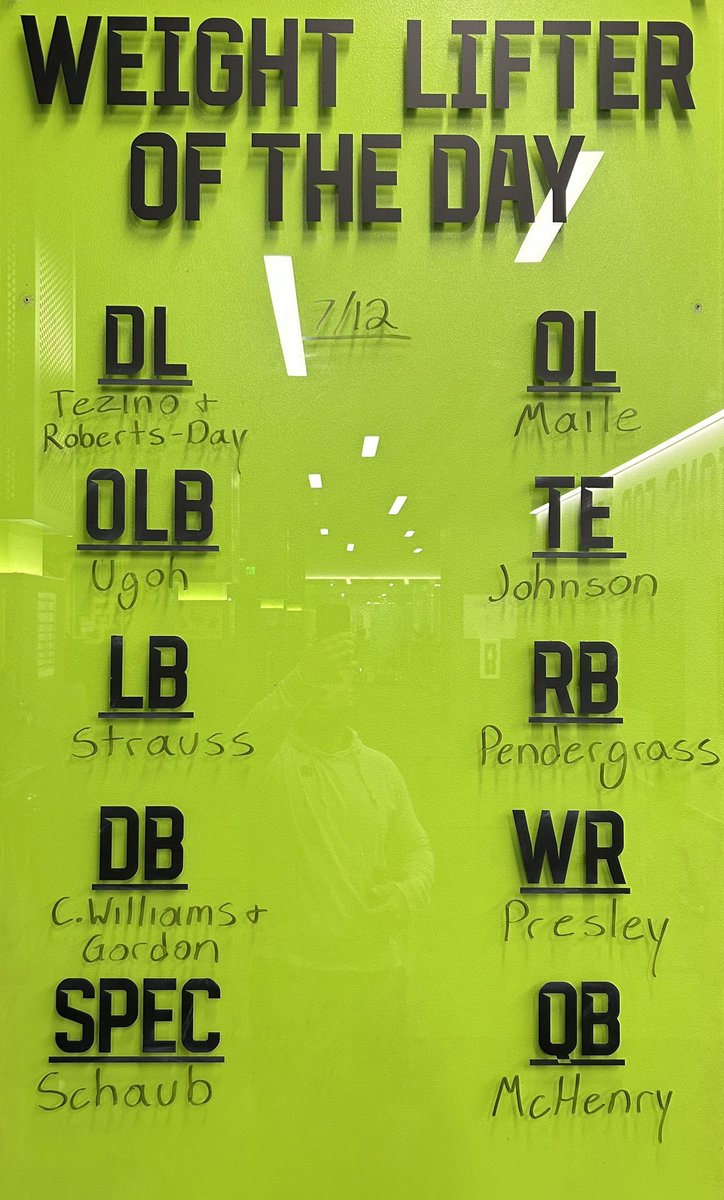 WEIGHT LIFTER
OF THE DAY
7/12
DL
Tezino +
Roberts-Day
OLB
Ugoh
LB
Strauss
DB
C. Williams +
Gordon
SPEC
Schaub
OL
Maile
TE
Johnson
RB
Pendergrass
WR
Presley
QB
McHenry